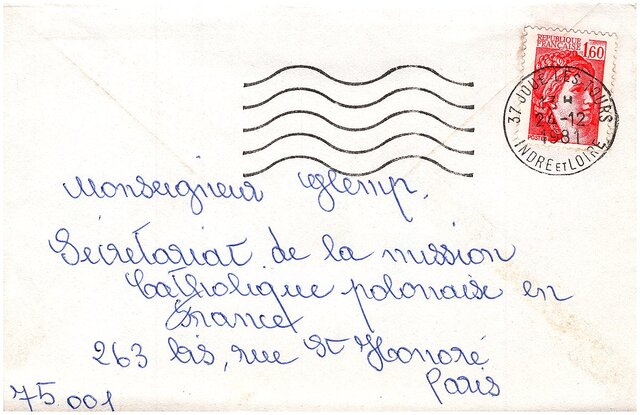 REPUBLIQUE
FRANCAISE
1,60
POSTES
37 JOUE-LES-TOURS
3 H
24-12
1981
INDRE ET LOIRE
Monseigneur Glemp.
Sécretariat de la mission
Catholique polonaise en
France
263 bis, rue St Honoré
Paris
75001